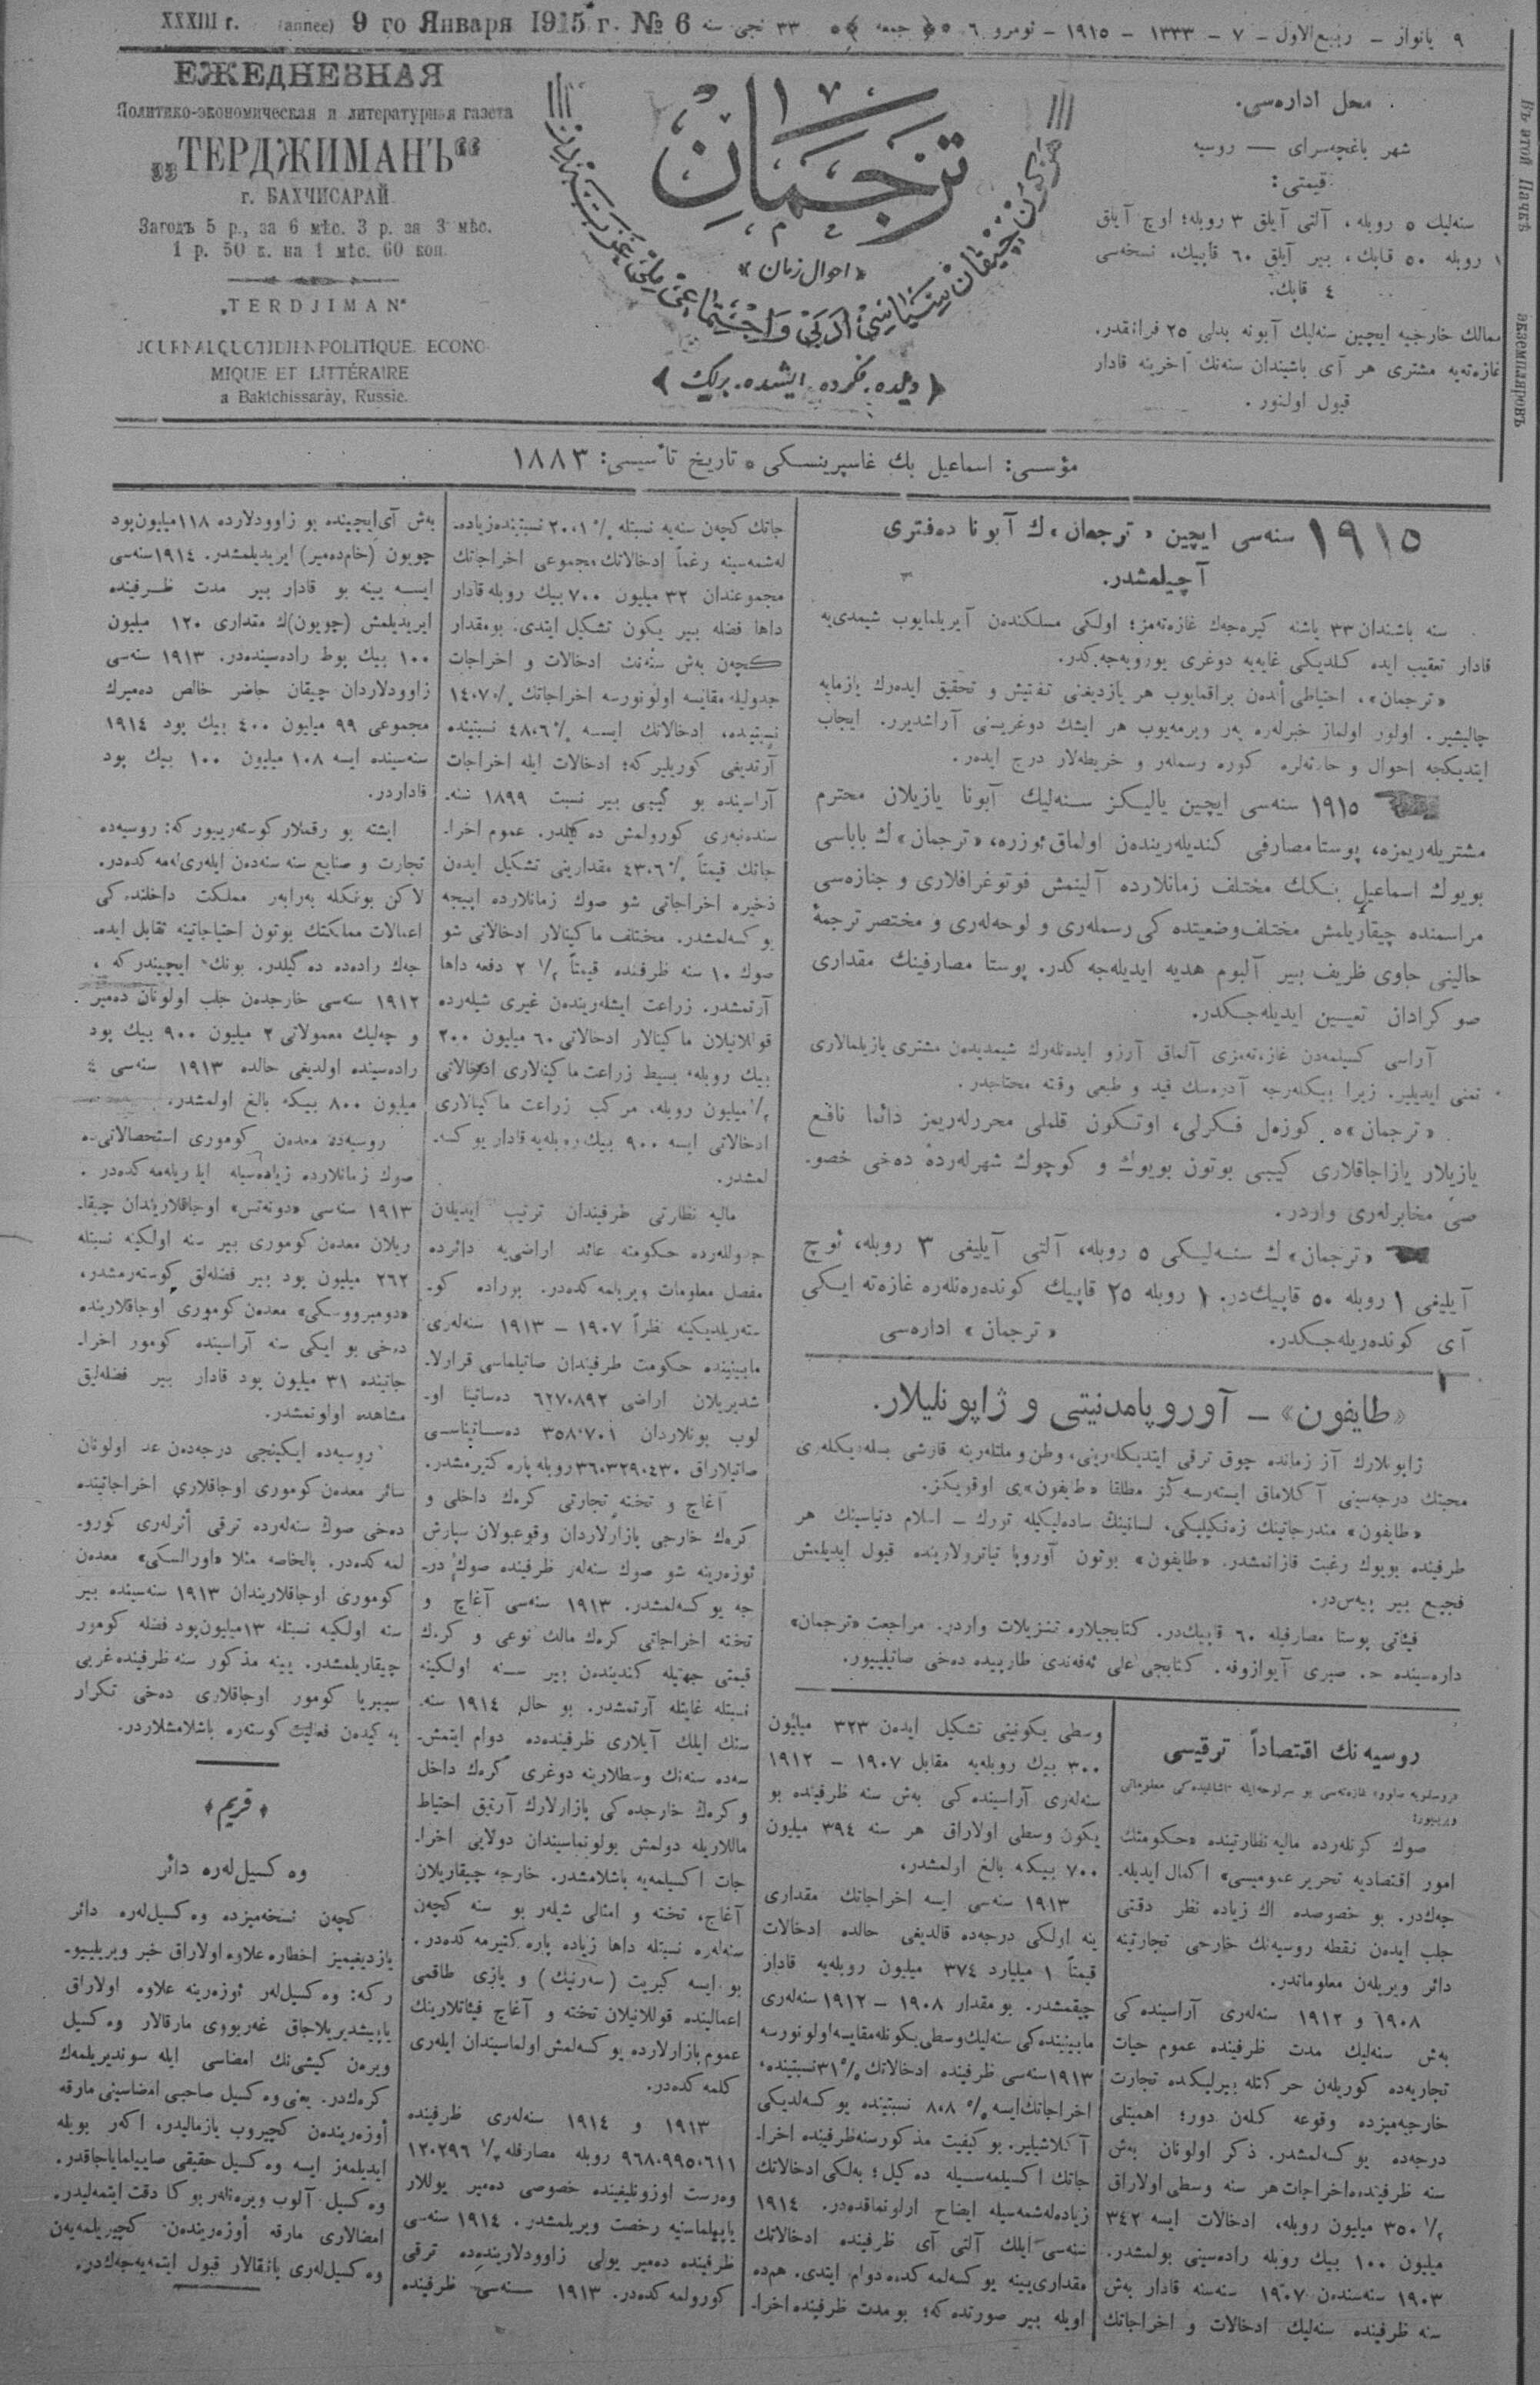 XXXIII г. (annee) 9 го Января 1915 г. № 6 ٣٣ نجی سنه جمعه ٩ یانوار – ربیع‌الاول – ٧ – ١٣٣٣ – ١٩١٥ – نومرو ٦
ЕЖЕДНЕВНАЯ
Политико-экономическая и литературная газета
„ТЕРДЖИМАНЪ“
г. БАХЧИСАРАЙ.
За годъ 5 р., за 6 мѣс. 3 р. за 3 мѣс.
1 р. 50 к. на 1 мѣс. 60 коп.
„TERDJIMAN“
JOURNAL QUOTIDIEN POLITIQUE. ECONO-
MIQUE ET LITTÉRAIRE
a Baktchissaráy, Russie.
ترجمان
«احوال زمان»
هر کون چیقان سیاسی، ادبی و اجتماعی ملی غزته
﴿ دلده. فکرده. ایشده. برلك ﴾
محل اداره‌سی.
شهر باغچه‌سرای — روسیه
قیمتی:
سنه‌لیك ٥ روبله، آلتی آیلق ٣ روبله؛ اوچ آیلق
١ روبله ٥٠ قاپك، بیر آیلق ٦٠ قاپیك. نسخه‌سی
٤ قاپك.
ممالك خارجیه ایچین سنه‌لیك آبونه بدلی ٢٥ فرانقدر.
غازه‌ته‌یه مشتری هر آی باشیندان سنه‌نك آخرینه قادار
قبول اولنور.
Въ этой Пачкѣ экземпляровъ
مؤسسی: اسماعیل بك غاسپرینسكی ٥ تاریخ تأسیسی: ١٨٨٣
١٩١٥ سنه‌سی ایچین «ترجمان»ك آبونا ده‌فتری
آچیلمشدر.
سنه باشندان ٣٣ یاشنه كیره‌جك غازه‌ته‌مز؛ اولكی مسلكندن آیریلمایوب شیمدی‌یه
قادار تعقیب ایده كلدیكی غایه‌یه دوغری یورویه‌جه‌كدر.
«ترجمان»، احتیاطی ألدن براقمایوب هر یازدیغنی تفتیش و تحقیق ایده‌رك یازمایه
چالیشیر. اولور اولماز خبرلره یه‌ر ویرمه‌یوب هر ایشك دوغریسنی آراشدیرر. ایجاب
ایتدیكجه احوال و حادثه‌لره كوره رسملر و خریطه‌لار درج ایده‌ر.
١٩١٥ سنه‌سی ایچین یالیكز سنه‌لیك آبونا یازیلان محترم
مشتریله‌ریمزه، پوستا مصارفی كندیله‌ریندن اولماق ئوزره، «ترجمان»ك باباسی
بویوك اسماعیل بكك مختلف زمانلارده آلینمش فوتوغرافلاری و جنازه‌سی
مراسمنده چیقاریلمش مختلف وضعیتده‌كی رسمله‌ری و لوحه‌له‌ری و مختصر ترجمهٔ
حالینی حاوی ظریف بیر آلبوم هدیه ایدیله‌جه‌كدر. پوستا مصارفینك مقداری
صوكرادان تعیین ایدیله‌جكدر.
آراسی كسیلمه‌دن غازه‌ته‌مزی آلماق آرزو ایده‌نله‌رك شیمدیدن مشتری یازیلمالاری
تمنی ایدیلیر. زیرا بیكله‌رجه آدره‌سك قید و طبعی وقته محتاجدر.
«ترجمان»ه كوزه‌ل فكرلی، اوتكون قلملی محررله‌ریمز دائما نافع
یازیلار یازاجاقلاری كیبی بوتون بویوك و كوچوك شهرله‌رده ده‌خی خصو-
صی مخابرله‌ری واردر.
«ترجمان»ك سنه‌لیكی ٥ روبله، آلتی آیلیغی ٣ روبله، ئوچ
آیلیغی ١ روبله ٥٠ قاپیك‌در. ١ روبله ٢٥ قاپیك كونده‌ره‌نله‌ره غازه‌ته ایكی
آی كونده‌ریله‌جكدر. «ترجمان» اداره‌سی
«طایفون» – آوروپا مدنیتی و ژاپونلیلار.
ژاپونلارك آز زمانده چوق ترقی ایتدیكله‌رینی، وطن و ملتله‌رینه قارشی بسله‌دیكله‌ری
محبتك درجه‌سینی آكلاماق ایسته‌رسه‌كز مطلقا «طایفون»ی اوقویكز.
«طایفون» مندرجاتینك زه‌نكیلیكی، لسانینك ساده‌لیكیله تورك – اسلام دنیاسینك هر
طرفینده بویوك رغبت قازانمشدر. «طایفون» بوتون آوروپا تیاترولارینده قبول ایدیلمش
فجیع بیر پیه‌س‌در.
فیئاتی پوستا مصارفیله ٦٠ قاپیك‌در. كتابجیلاره تنزیلات واردر. مراجعت «ترجمان»
داره‌سینده ح. صبری آیوازوفه. كتابجی علی ئه‌فه‌ندی طارپیده ده‌خی صاتیلییور.
روسیه‌نك اقتصاداً ترقیسی
صوك كونله‌رده مالیه نظارتینده «حكومتك
امور اقتصادیه تحریر عمومیسی» اكمال ایدیله-
جه‌كدر. بو خصوصده اك زیاده نظر دقتی
جلب ایده‌ن نقطه روسیه‌نك خارجی تجارتینه
دائر ویریلن معلوماتدر.
١٩٠٨ و ١٩١٢ سنه‌له‌ری آراسینده‌كی
به‌ش سنه‌لیك مدت ظرفینده عموم حیات
تجاریه‌ده كوریله‌ن حركتله بیرلیكده تجارت
خارجیه‌میزده وقوعه كله‌ن دور؛ اهمیتلی
درجه‌ده یوكسه‌لمشدر. ذكر اولونان به‌ش
سنه ظرفینده اخراجات هر سنه وسطی اولاراق
٣٥٠ ١/٢ میلیون روبله، ادخالات ایسه ٣٤٢
میلیون ١٠٠ بیك روبله راده‌سینی بولمشدر.
١٩٠٣ سنه‌سندن ١٩٠٧ سنه‌سنه قادار به‌ش
سنه ظرفینده سنه‌لیك ادخالات و اخراجاتك
وسطی یكونینی تشكیل ایده‌ن ٣٢٣ میلیون
٣٠٠ بیك روبله‌یه مقابل ١٩٠٧ – ١٩١٢
سنه‌له‌ری آراسینده‌كی به‌ش سنه ظرفینده بو
یكون وسطی اولاراق هر سنه ٣٩٤ میلیون
٧٠٠ بیكه بالغ اولمشدر.
١٩١٣ سنه‌سی ایسه اخراجاتك مقداری
ینه اولكی درجه‌ده قالدیغی حالده ادخالات
قیمتاً ١ میلیارد ٣٧٤ میلیون روبله‌یه قادار
چیقمشدر. بو مقدار ١٩٠٨ – ١٩١٢ سنه‌له‌ری
مابینینده‌كی سنه‌لیك وسطی یكونله مقایسه اولونورسه
١٩١٣ سنه‌سی ظرفینده ادخالاتك ٣١٪ نسبتینده،
اخراجاتك ایسه ٨،٨٪ نسبتینده یوكسه‌لدیكی
آكلاشیلیر. بو كیفیت مذكور سنه ظرفینده اخرا-
جاتك اكسیلمه‌سیله ده‌كیل؛ به‌لكی ادخالاتك
زیاده‌له‌شمه‌سیله ایضاح اولونماقده‌در. ١٩١٤
سنه‌سی ایلك آلتی آی ظرفینده ادخالاتك
مقداری یینه یوكسه‌لمه‌كده دوام ایتدی. هم‌ده
اویله بیر صورتده‌كه؛ بو مدت ظرفینده اخرا-
جاتك كچه‌ن سنه‌یه نسبتله ٢٠،١٪ نسبتینده زیاده-
له‌شمه‌سینه رغماً ادخالاتك مجموعی اخراجاتك
مجموعندان ٣٢ میلیون ٧٠٠ بیك روبله قادار
داها فضله بیر یكون تشكیل ایتدی. بو مقدار
كچه‌ن به‌ش سنه‌نك ادخالات و اخراجات
جدولیله مقایسه اولونورسه اخراجاتك ١٤،٧٠٪
نسبتینده، ادخالاتك ایسه ٤٨،٦٪ نسبتینده
آرتدیغی كوریلیر كه؛ ادخالات ایله اخراجات
آراسینده بو كیبی بیر نسبت ١٨٩٩ سنه-
سنده‌نبه‌ری كورولمش ده‌كیلدر. عموم اخرا-
جاتك قیمتاً ٤٣،٦٪ مقدارینی تشكیل ایده‌ن
ذخیره اخراجاتی شو صوك زمانلارده اییجه
یوكسه‌لمشدر. مختلف ماكینالار ادخالاتی شو
صوك ١٠ سنه ظرفینده قیمتاً ٢ ١/٢ دفعه داها
آرتمشدر. زراعت ایشله‌ریندن غیری شیله‌رده
قوللانیلان ماكینالار ادخالاتی ٦٠ میلیون ٢٠٠
بیك روبله، بسیط زراعت ماكینالاری ادخالاتی
میلیون روبله، مركب زراعت ماكینالاری
ادخالاتی ایسه ٩٠٠ بیك روبله‌یه قادار یوكسه-
لمشدر.
مالیه نظارتی طرفیندان ترتیب ایدیله‌ن
جدوللرده حكومته عائد اراضی‌یه دائرده
مفصل معلومات ویریلمه‌كده‌در. بوراده كو-
سته‌ریلدیكینه نظراً ١٩٠٧ – ١٩١٣ سنه‌له‌ری
مابینینده حكومت طرفیندان صاتیلماسی قرارلا-
شدیریلان اراضی ٦٢٧٠٨٩٢ ده‌ساتینا او-
لوب بونلاردان ٣٥٨٠٧٠١ ده‌ساتیناسی
صاتیلاراق ٣٦٠٣٢٩٠٤٣٠ روبله پاره كتیرمشدر.
آغاچ و تخته تجارتی كرك داخلی و
كرك خارجی بازارلاردان وقوعبولان سپارش
ئوزه‌رینه شو صوك سنه‌له‌ر ظرفینده صوك در-
جه یوكسه‌لمشدر. ١٩١٣ سنه‌سی آغاچ و
تخته اخراجاتی كرك مالك نوعی و كرك
قیمتی جهتیله كندیندن بیر سنه اولكینه
نسبتله غایتله آرتمشدر. بو حال ١٩١٤ سنه-
سنك ایلك آیلاری ظرفینده‌ده دوام ایتمش-
سه‌ده سنه‌نك وسطلارینه دوغری كرك داخل
و كرك خارجده‌كی بازارلارك آرتیق احتیاط
ماللاریله دولمش بولونماسیندان دولایی اخرا-
جات اكسیلمه‌یه باشلامشدر. خارجه چیقاریلان
آغاچ، تخته و امثالی شیلر بو سنه كچه‌ن
سنه‌له‌ره نسبتله داها زیاده پاره كتیرمه‌كده‌در.
بو ایسه كبریت (سه‌رنیك) و یازی طاقمی
اعمالینده قوللانیلان تخته و آغاچ فیئاتلارینك
عموم بازارلارده یوكسه‌لمش اولماسیندان ایله‌ری
كلمه‌كده‌در.
١٩١٣ و ١٩١٤ سنه‌له‌ری ظرفینده
٩٦٨،٩٩٥،٦١١ روبله مصارفله ١٢،٢٩٦
وه‌رست اوزونلیغینده خصوصی ده‌میر یوللار
یاپیلماسنیه رخصت ویریلمشدر. ١٩١٤ سنه‌سی
ظرفینده ده‌میر یولی زاوودلارینده‌ده ترقی
كورولمه‌كده‌در. ١٩١٣ سنه‌سی ظرفینده
به‌ش آی ایچینده بو زاوودلارده ١١٨ میلیون پود
چویون (خام ده‌میر) ایریدیلمشدر. ١٩١٤ سنه‌سی
ایسه یینه بو قادار بیر مدت ظرفینده
ایریدیلمش (چویون)ك مقداری ١٢٠ میلیون
١٠٠ بیك پوط راده‌سینده‌در. ١٩١٣ سنه‌سی
زاوودلاردان چیقان حاضر خالص ده‌میرك
مجموعی ٩٩ میلیون ٤٠٠ بیك پود ١٩١٤
سنه‌سینده ایسه ١٠٨ میلیون ١٠٠ بیك پود
قاداردر.
ایشته بو رقملار كوسته‌رییور كه: روسیه‌ده
تجارت و صنایع سنه سنه‌دن ایله‌ری‌له‌مه‌كده‌در.
لاكن بونكله به‌رابه‌ر مملكت داخلنده‌كی
اعمالات مملكتك بوتون احتیاجاتینه تقابل ایده-
جه‌ك راده‌ده ده‌كیلدر. بونك ایچیندركه،
١٩١٢ سنه‌سی خارجدن جلب اولونان ده‌میر
و چه‌لیك معمولاتی ٢ میلیون ٩٠٠ بیك پود
راده‌سینده اولدیغی حالده ١٩١٣ سنه‌سی ٤
میلیون ٨٠٠ بیكه بالغ اولمشدر.
روسیه‌ده معدن كوموری استحصالاتی‌ده
صوك زمانلارده زیاده‌سیله ایلریله‌مه‌كده‌در.
١٩١٣ سنه‌سی «دونه‌تس» اوجاقلاریندان چیقا-
ریلان معدن كوموری بیر سنه اولكینه نسبتله
٢٦٢ میلیون پود بیر فضله‌لق كوسته‌رمشدر،
«دومبرووسكی» معدن كوموری اوجاقلارینده
ده‌خی بو ایكی سنه آراسینده كومور اخرا-
جاتینده ٣١ میلیون پود قادار بیر فضله‌لیق
مشاهده اولونمشدر.
روسیه‌ده ایكینجی درجه‌دن عد اولونان
سائر معدن كوموری اوجاقلاری اخراجاتینده
ده‌خی صوك سنه‌له‌رده ترقی أثرله‌ری كورو-
لمه‌كده‌در. بالخاصه مثلا «اورالسكی» معدن
كوموری اوجاقلاریندان ١٩١٣ سنه‌سینده بیر
سنه اولكیه نسبتله ١٣ میلیون پود فضله كومور
چیقاریلمشدر. یینه مذكور سنه ظرفینده غربی
سیبریا كومور اوجاقلاری ده‌خی تكرار
یه‌كیدن فعالیت كوسته‌ره باشلامشلاردر.
﴿قریم﴾
وه‌كسیل‌له‌ره دائر
كچه‌ن نسخه‌میزده وه‌كسیل‌له‌ره دائر
یازدیغیمیز اخطاره علاوه اولاراق خبر ویریلییو-
ر كه: وه‌كسیل‌له‌ر ئوزه‌رینه علاوه اولاراق
یاپیشدیریلاجاق غه‌ربووی مارقالار وه‌كسیل
ویره‌ن كیشی‌نك امضاسی ایله سوندیریلمه‌ك
كرك‌در. یعنی وه‌كسیل صاحبی امضاسینی مارقه
أوزه‌ریندن كچیروب یازمالیدر، اكر بویله
ایدیلمه‌ز ایسه وه‌كسیل حقیقی صاییلمایاجاقدر.
وه‌كسیل آلوب ویره‌نله‌ر بوكا دقت ایتمه‌لیدر.
امضالاری مارقه أوزه‌ریندن كچیریلمه‌یه‌ن
وه‌كسیل‌له‌ری بانقالار قبول ایتمه‌یه‌جه‌كدر.